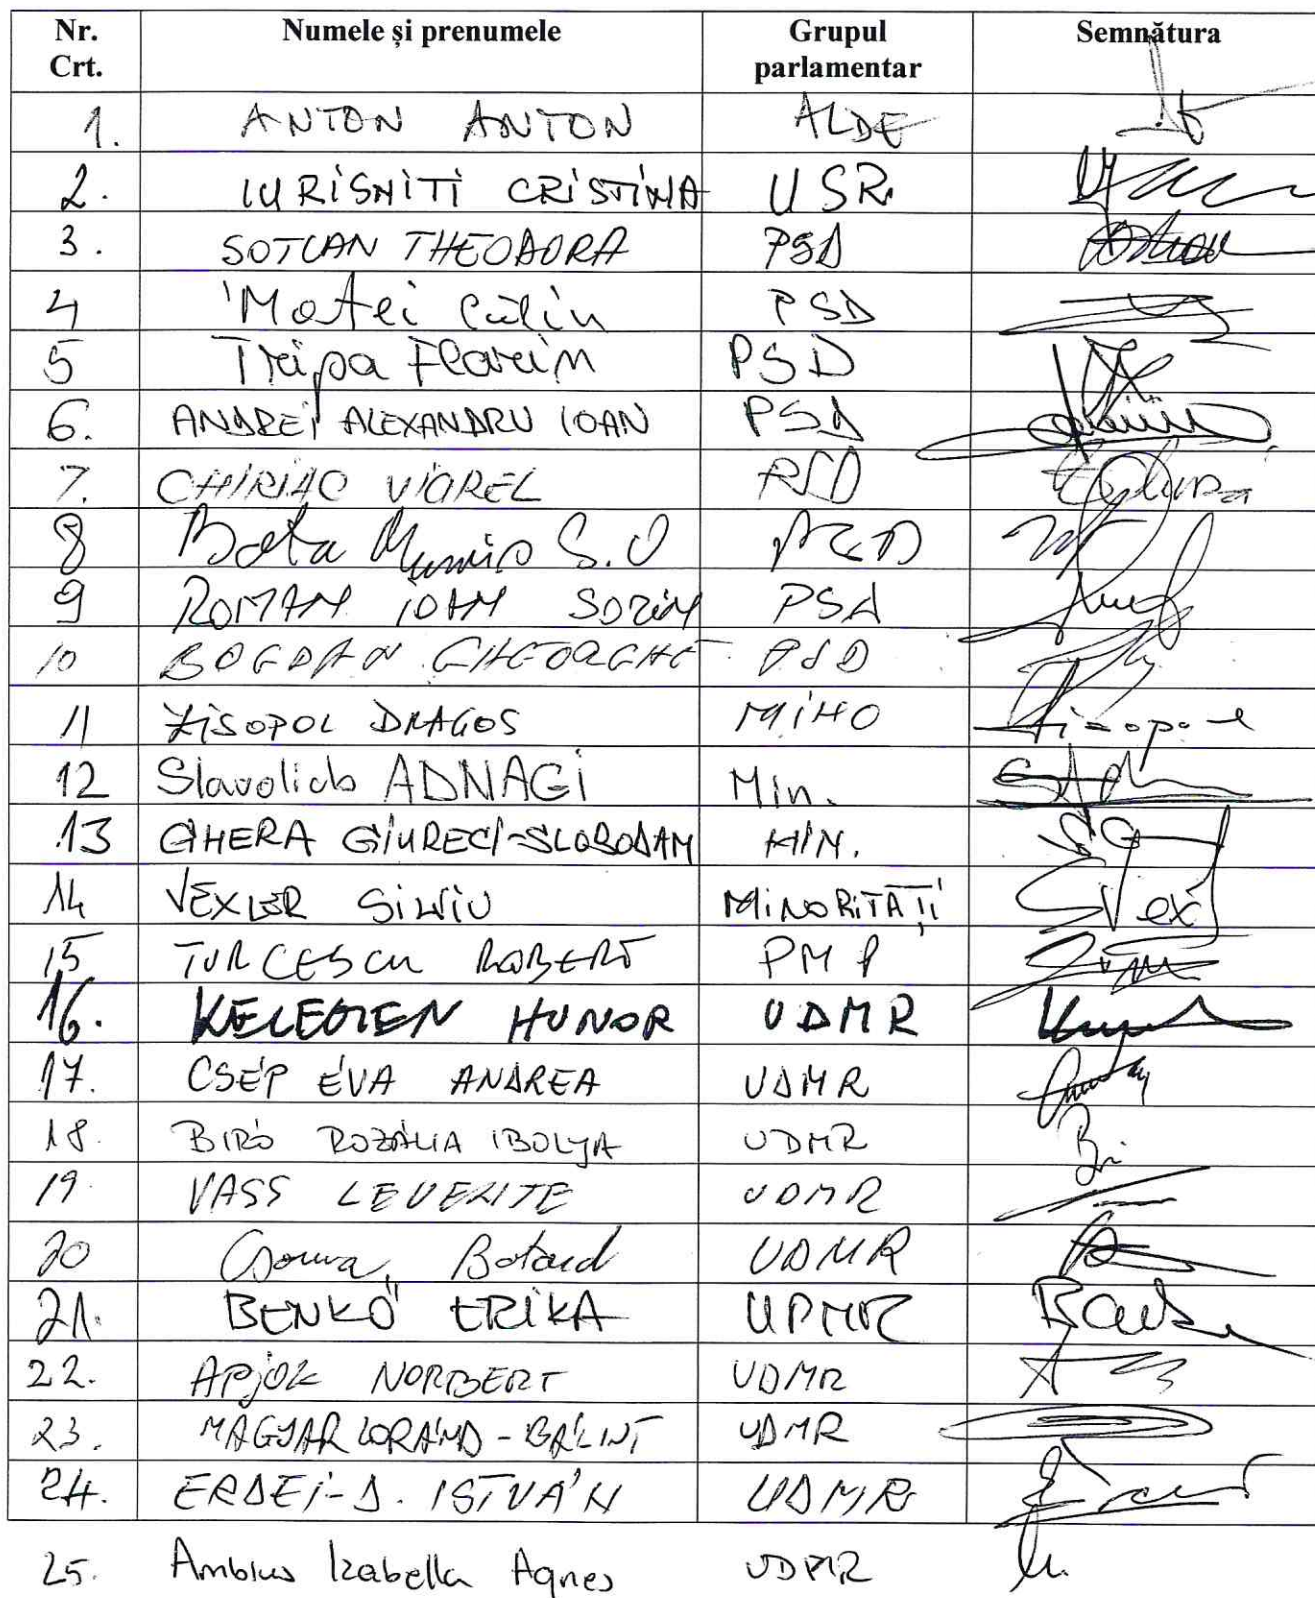 Nr. Crt. Numele și prenumele Grupul parlamentar Semnătura
1. ANTON ANTON ALDE
2. IURISNITI CRISTINA USR
3. SOTCAN THEODORA PSD
4 Matei Călin PSD
5 Tripa Florin PSD
6. ANDREI ALEXANDRU IOAN PSD
7. CHIRIAC VIOREL PSD
8 S.O PSD
9 ROMAN IOAN SORIN PSD
10 BOGDAN GHEORGHE PSD
11 ZISOPOL DRAGOS MINO Zisopol
12 Slavoliub ADNAGI Min.
13 GHERA GIURECI-SLOBODAN MIN.
14 VEXLER SILVIU MINORITĂȚI SVex
15 TURCESCU ROBERT PMP
16. KELEMEN HUNOR UDMR
17. CSÉP ÉVA ANDREA UDMR
18. BIRÓ ROZÁLIA IBOLYA UDMR
19. VASS LEVENTE UDMR
20 Csoma Botond UDMR
21. BENKŐ ERIKA UDMR
22. APJOK NORBERT UDMR
23. MAGYAR LORÁND-BÁLINT UDMR
24. ERDEI-D. ISTVÁN UDMR
25. Ambrus Izabella Agnes UDMR